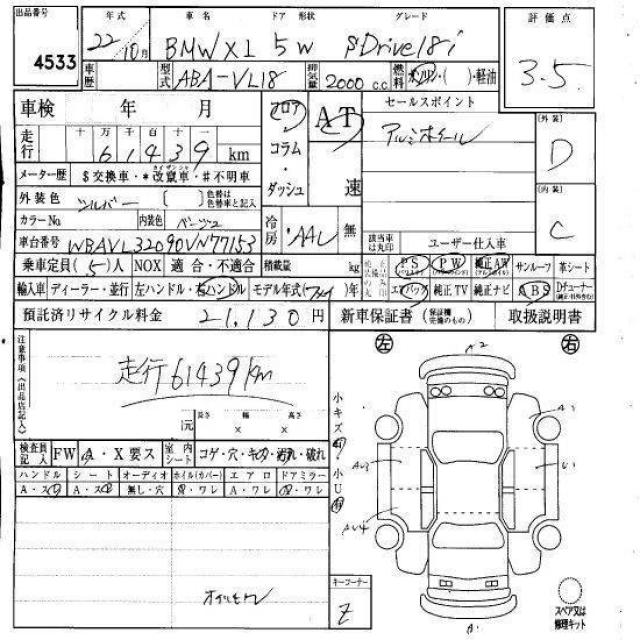 出品番号 4533
年式 22/10月
車名 BMW X1
ドア 形状 5W
グレード sDrive18i
評価点 3.5
車歴
型式 ABA-VL18
排気量 2000 c.c.
燃料 ガソリン・( )・軽油
車検 年 月
フロア コラム・ダッシュ
AT 速
セールスポイント
アルミホイール
[外装] D
走行 十万千百十一 61439 km
メーター歴 $交換車・*改竄車・#不明車
[内装] C
外装色 シルバー [ ] 色替は色替車と記入
カラーNo 内装色 ベージュ
冷房 AAC 無
車台番号 WBAVL32090VN77153
該当車は丸印 ユーザー仕入車
乗車定員(5)人 NOX 適合・不適合 積載量 kg
PS PW 純正AW サンルーフ 革シート
輸入車 ディーラー・並行 左ハンドル・右ハンドル モデル年式( )年
エアバッグ 純正TV 純正ナビ ABS Dチューナー
預託済リサイクル料金 21,130円
新車保証書(保証欄完備のもの) 取扱説明書
注意事項(出品店記入)
走行61439km
元 長さ × 幅 × 高さ
左 A2 右
小キズ 小U
A1
AU3 U1
AU4
A1
検査員記入 FW A・X要ス 室内シート コゲ・穴・キズ・汚れ・破れ
ハンドル シート オーディオ ホイル(カバー) エアロ ドアミラー
A・ス A・ス 無し・穴 ・ワレ A・ワレ ・ワレ
キーコーナー Z
スペア又は修理キット